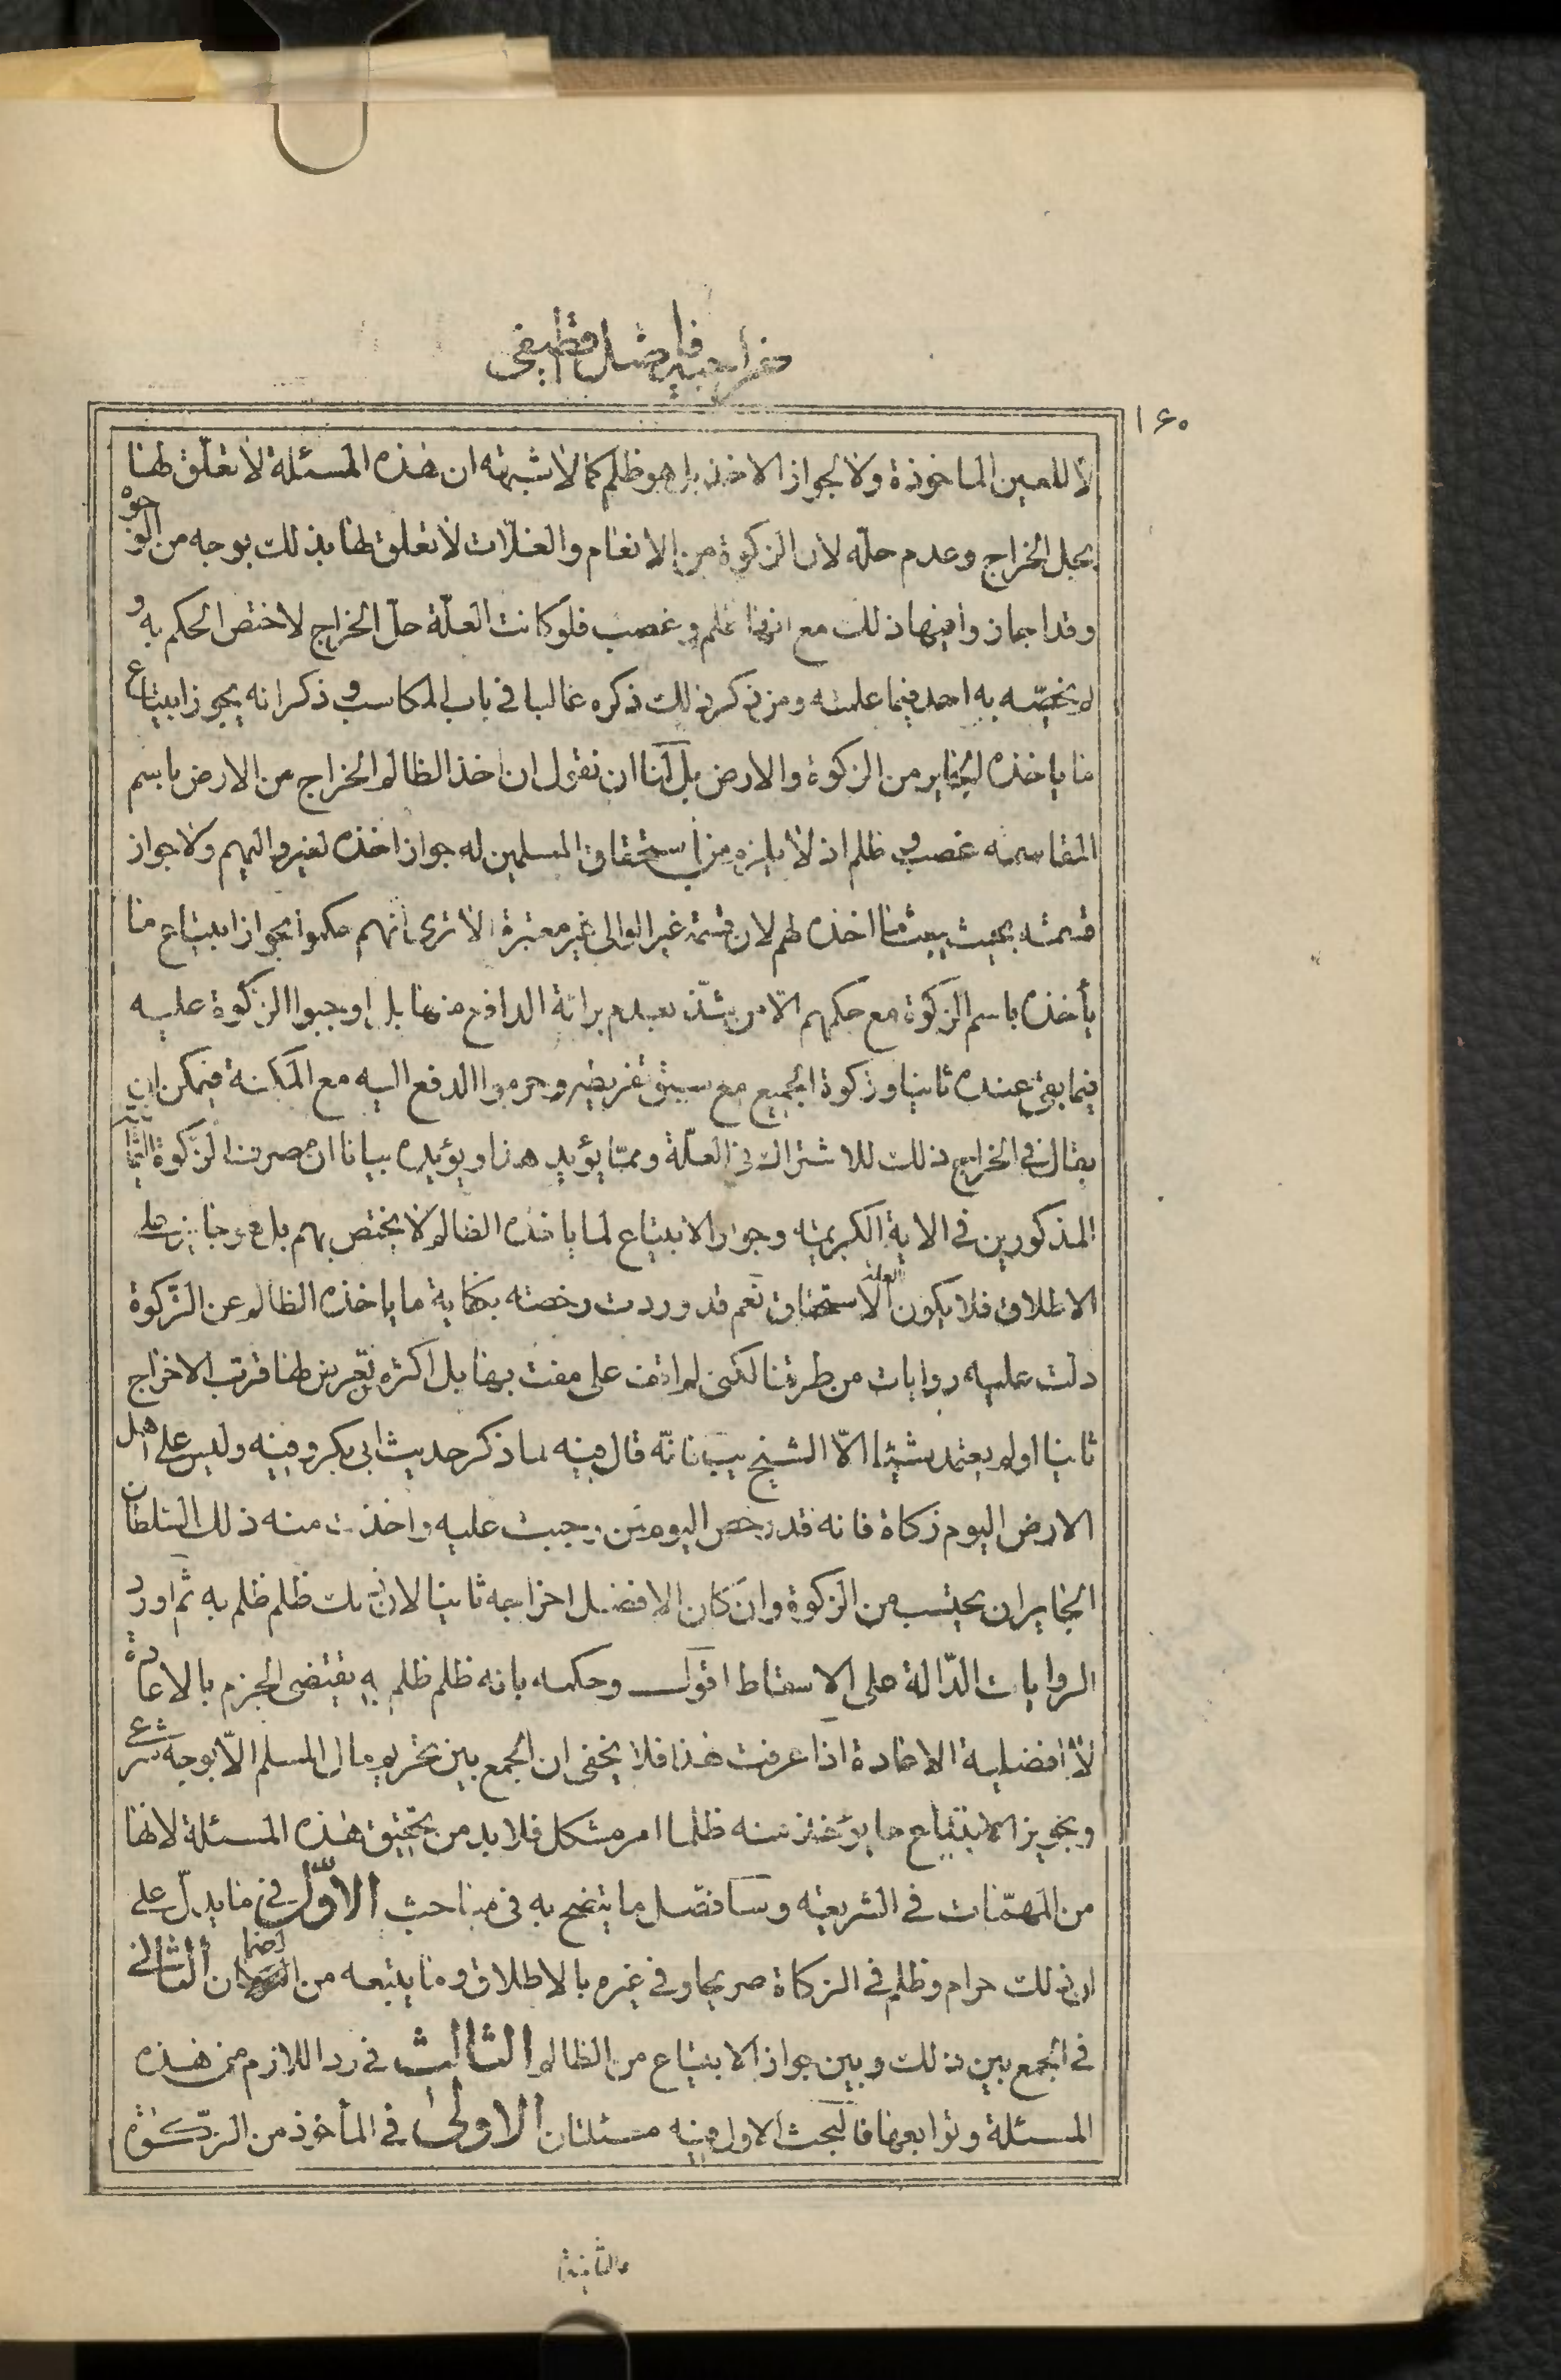 خراجیه فاضل قطیفی
۱۶۰
لا للعين الماخوذة ولا لجواز الاخذ بل هو ظلم كما لا شبهته ان هذه المسئلة لا تعلّق لها
بحل الخراج وعدم حلّه لان الزكوة من الانعام والغلّات لا تعلق لها بذلك بوجه من الوجوه
وقد اجازوا فيها ذلك مع انها ظلم وغصب فلو كانت العلّة حلّ الخراج لاختص الحكم به و
لم يخصّه به احد فيما علمته ومن ذكر ذلك ذكره غالبا في باب المكاسب و ذكر انه يجوز ابتياع
ما ياخذه الجاير من الزكوة والارض بل لنا ان نقول ان اخذ الظالم الخراج من الارض باسم
المقاسمه غصب و ظلم اذ لا يلزم من استحقاق المسلمين له جواز اخذه لغير واليهم ولا جواز
قسمته بحيث يبيت ما اخذه لهم لان قسمة غير الوالى غير معتبرة الا ترى انهم حكموا بجواز ابتياع ما
يأخذه باسم الزكوة مع حكمهم الّا من شذّ بعدم برائة الدافع منها بل اوجبوا الزكوة عليه
فيما بقى عنده ثانيا وزكوة الجميع مع سبق تفريطه وحرموا الدفع اليه مع المكنة فيمكن ان
يقال في الخراج ذلك للاشتراك في العلّة وممّا يؤيد هذا ويؤيده بيانا ان مصرف الزّكوة الثمانية
المذكورين في الاية الكريمه وجواز الابتياع لما ياخذه الظالم لا يختص بهم بل هو جايز على
الاطلاق فلا يكون العلة الاستحقاق نعم قد وردت رخصته بكفاية ما ياخذه الظالم عن الزّكوة
دلت عليه روايات من طرقنا لكنى لم اقف على مفت بها بل اكثرهم تعرض لها قرتب الاخراج
ثانيا او لم يعتمد شيئا الّا الشيخ يب فانّه قال فيه لما ذكر حديث ابى بكر وفيه وليس على اهل
الارض اليوم زكاة فانه قد رخص اليوم لمن وجبت عليه واخذت منه ذلك السّلطان
الجاير ان يحتسب من الزكوة وان كان الافضل اخراجه ثانيا لان ذلك ظلم ظلم به ثم اورد
الروايات الدّالة على الاسقاط اقول وحكمه بانه ظلم ظلم به يقتضى الجزم بالاعادة
لا افضلية الاعادة اذا عرفت هذا فلا يخفى ان الجمع بين تحريم مال المسلم الّا بوجه شرعى
وتجويز الابتياع ما يؤخذ منه ظلما امر مشكل فلا بد من تحقيق هذه المسئلة لانها
من المهمّات في الشريعه وسافصّل ما يتضح به فى مباحث الاوّل في ما يدلّ على
ان ذلك حرام وظلم في الزكاة صريحا وفي غيره بالاطلاق وما يتبعه من الضمان الثانى
في الجمع بين ذلك وبين جواز الابتياع من الظالم الثالث في رد اللازم من هذه
المسئلة وتوابعها فالبحث الاول فيه مسئلتان الاولى في المأخوذ من الزّكوة
والثانية